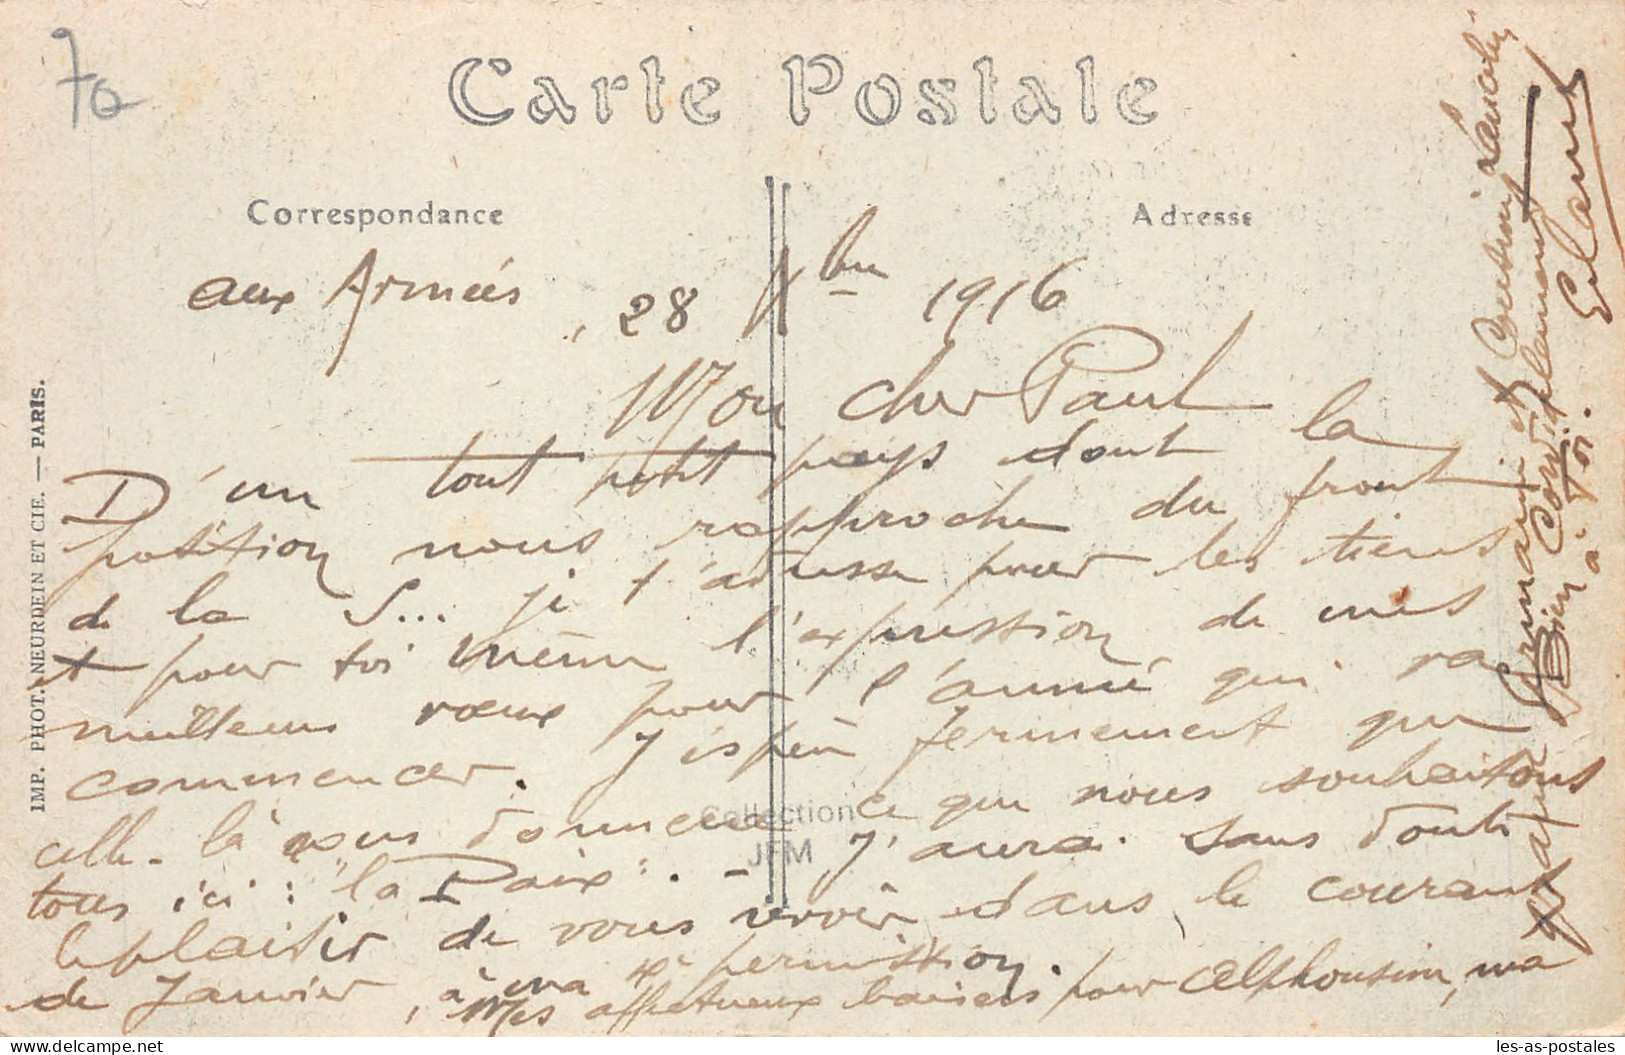 70
Carte Postale
Correspondance
Adresse
aux Armées, 28 Xbre 1916
Mon cher Paul
D'un tout petit pays dont la
position nous rapproche du front
de la S... je t'adresse pour les tiens
et pour toi même l'expression de mes
meilleurs vœux pour l'année qui va
commencer. J'espère fermement que
celle-là nous donnera ce que nous souhaitons
tous ici : "la Paix". - J'aurai sans doute
le plaisir de vous revoir dans le courant
de Janvier, à ma permission.
Mes affectueux baisers pour Alphonsine, ma
Germaine et
Bien Cordialement
à Toi.
IMP. PHOT. NEURDEIN ET CIE. — PARIS.
Collection
JFM
delcampe.net
les-as-postales